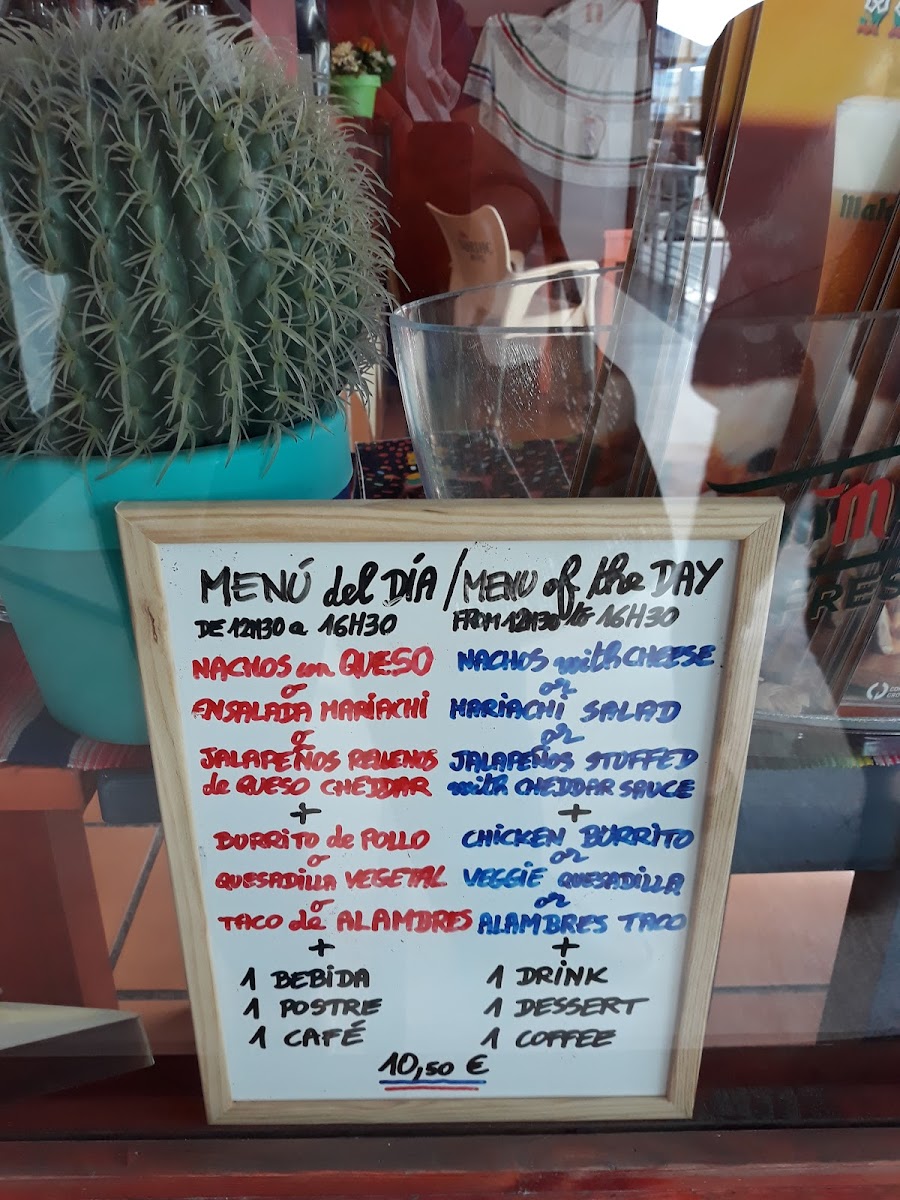 MENÚ del DÍA / MENU of the DAY
DE 12H30 a 16H30
FROM 12H30 to 16H30
NACHOS con QUESO
o
ENSALADA MARIACHI
o
JALAPEÑOS RELLENOS
de QUESO CHEDDAR
+
BURRITO de POLLO
o
QUESADILLA VEGETAL
o
TACO de ALAMBRES
+
1 BEBIDA
1 POSTRE
1 CAFÉ
NACHOS with CHEESE
or
MARIACHI SALAD
or
JALAPEÑOS STUFFED
with CHEDDAR SAUCE
+
CHICKEN BURRITO
or
VEGGIE QUESADILLA
or
ALAMBRES TACO
+
1 DRINK
1 DESSERT
1 COFFEE
10,50 €